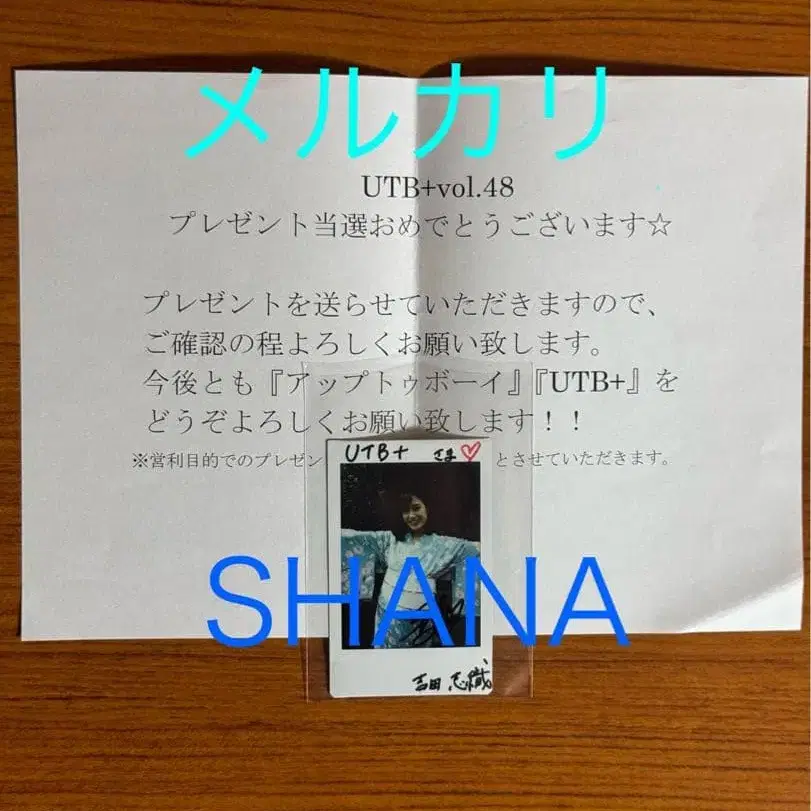 メルカリ
UTB+vol.48
プレゼント当選おめでとうございます☆
プレゼントを送らせていただきますので、
ご確認の程よろしくお願い致します。
今後とも『アップトゥボーイ』『UTB+』を
どうぞよろしくお願い致します！！
※営利目的でのプレゼン
とさせていただきます。
UTB+ さま♡
SHANA
吉田 志織